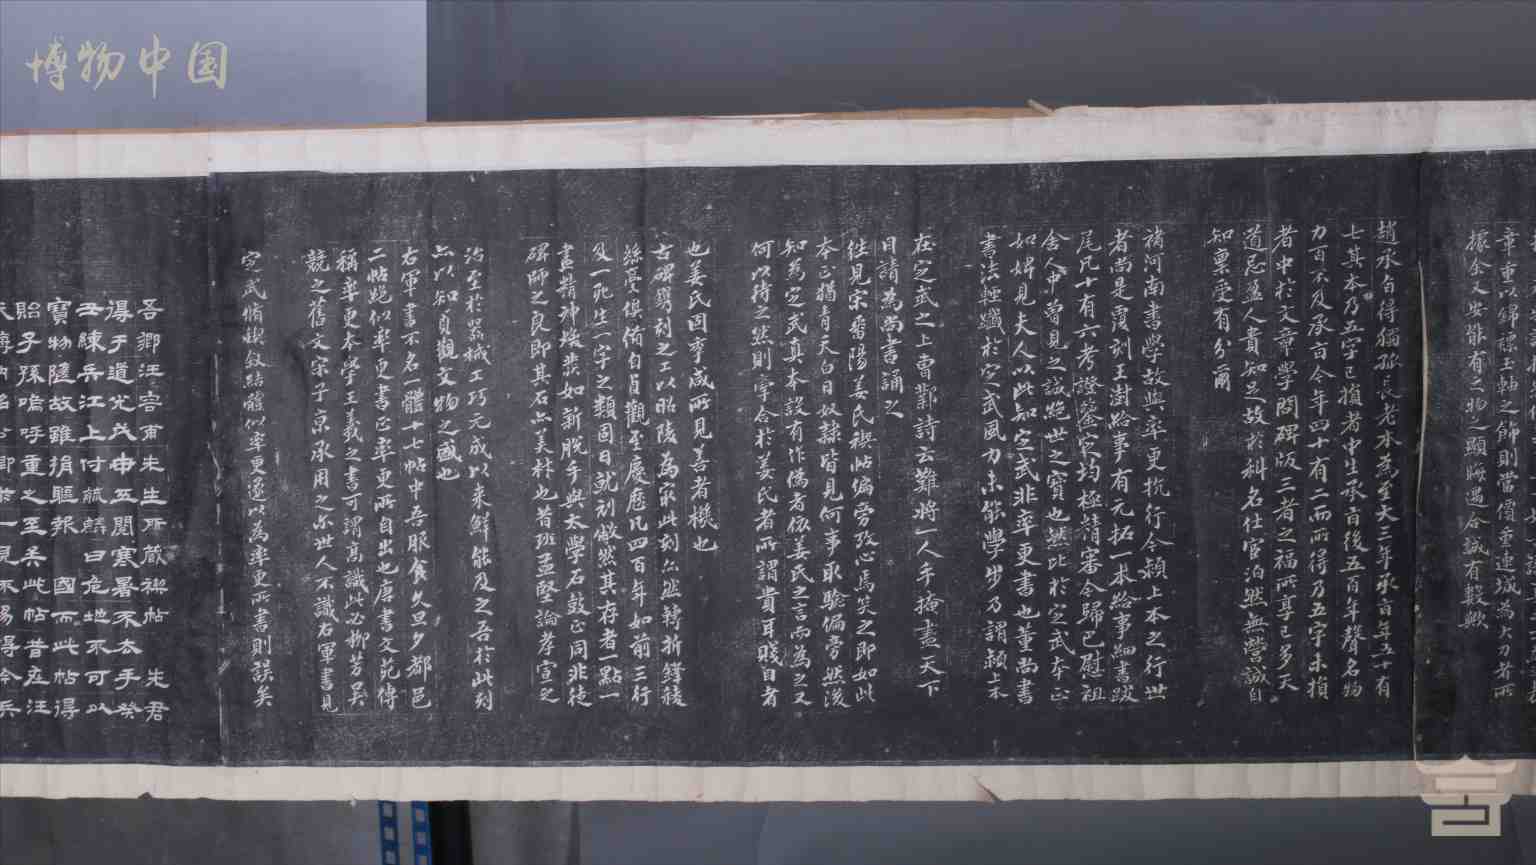 博物中国
章重以錦褾玉軸之飾則當價重連城為大力者所
據余又安能有之物之顯晦遇合誠有數歟
趙承旨得獨孤長老本為至大三年承旨年五十有
七其本乃五字已損者中生承旨後五百年聲名物
力百不及承旨今年四十有二而所得乃五字未損
者中於文章學問碑版三者之福所享已多天
道忌盈人貴知足故於科名仕宦泊然無營誠自
知稟受有分爾
褚河南書學故與率更抗行今潁上本之行世
者尚是覆刻王澍給事有元拓一本給事細書跋
尾凡十有六考證鑒家均極精審今歸巴慰祖
舍人中曾見之誠絕世之寶也然比於定武本正
如婢見夫人以此知定武非率更書也董尚書
書法輕孅於定武風力未能學步乃謂潁上本
在定武之上曹鄴詩云難將一人手掩盡天下
目請為尚書誦之
往見宋番陽姜氏禊帖偏旁攷心焉笑之即如此
本正猶青天白日奴隸皆見何事取驗偏旁然後
知為定武真本設有作偽者依姜氏之言而為之又
何以待之然則字合於姜氏者所謂貴耳賤目者
也姜氏因事咸所見善者機也
古碑刻之工以昭陵為最此刻公然轉折鋒稜
絲髮俱備自貞觀至慶曆凡四百年如前三行
及一死生一字之類固日就刓敝然其存者一點一
畫精神煥發如新脫手與太學石鼓正同非徒
碑師之良即其石亦美材也昔班孟堅論孝宣之
治至於器械工巧元成以來鮮能及之吾於此刻
亦以知貞觀文物之盛也
右軍書不名一體十七帖中吾服食久旦夕都邑
二帖絕似率更書正率更所自出也唐書文苑傳
稱率更本學王羲之書可謂高識此必柳芳吳
兢之舊文宋子京承用之爾世人不識右軍書見
定武脩禊敘結體似率更遂以為率更所書則誤矣
吾鄉汪容甫先生所藏禊帖 先君
得于道光戊申五閱寒暑不去手癸
丑練兵江上付毓麟曰危地不可以
寶物隨故雖捐軀報 國而此帖得
貽子孫嗚呼重之至矣此帖昔在汪